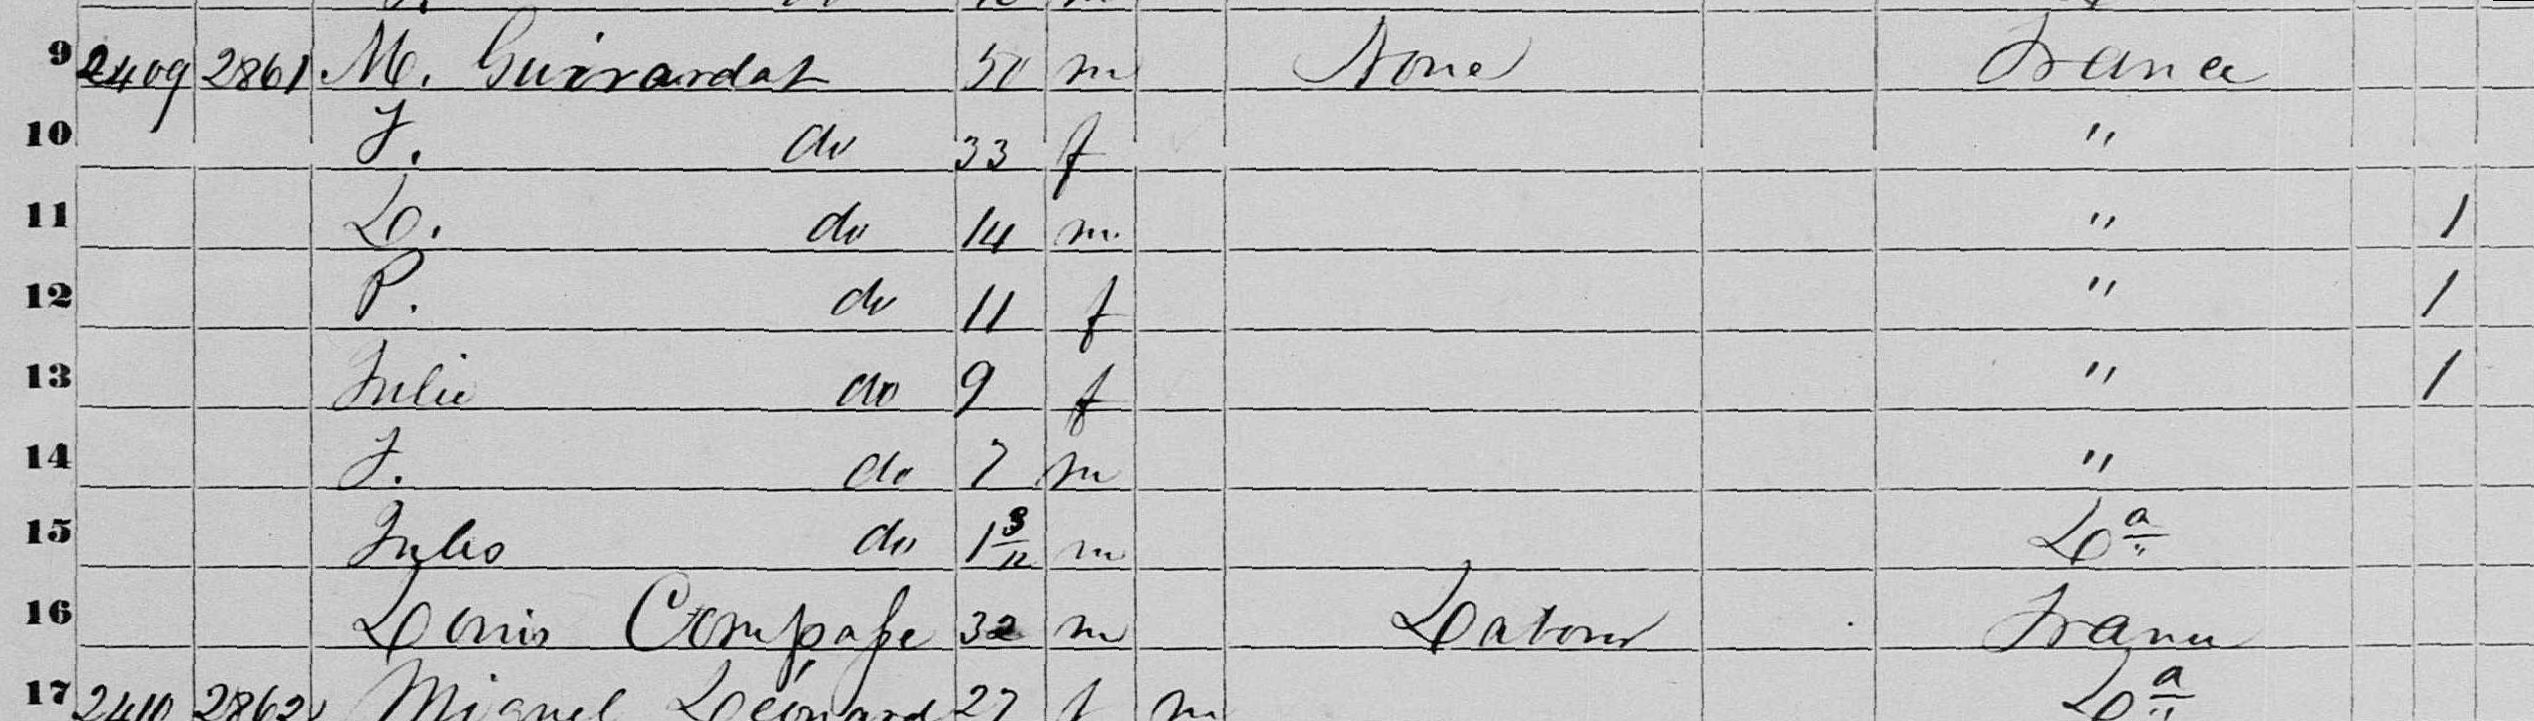 9 2409 2861 M. Guirardat 50 m None France
10 J. do 33 f "
11 L. do 14 m. " 1
12 P. do 11 f " 1
13 Julie do 9 f " 1
14 J. do 7 m "
15 Jules do 1 3/12 m La
16 Louis Compasse 32 m Labour France
17 2410 2862 Miguel Léonard 27 f m La